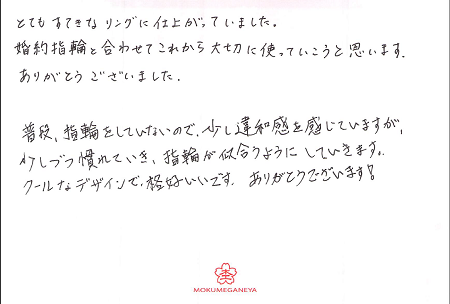 とても すてきな リングに仕上がっていました。
婚約指輪と合わせてこれから大切に使っていこうと思います。
ありがとうございました。
普段、指輪をしていないので、少し違和感を感じていますが、
少しづつ慣れていき、指輪が似合うようにしていきます。
クールなデザインで、格好いいです。ありがとうございます!
MOKUMEGANEYA